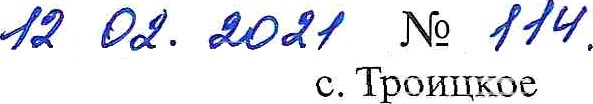 12 02. 2021 № 114.
с. Троицкое